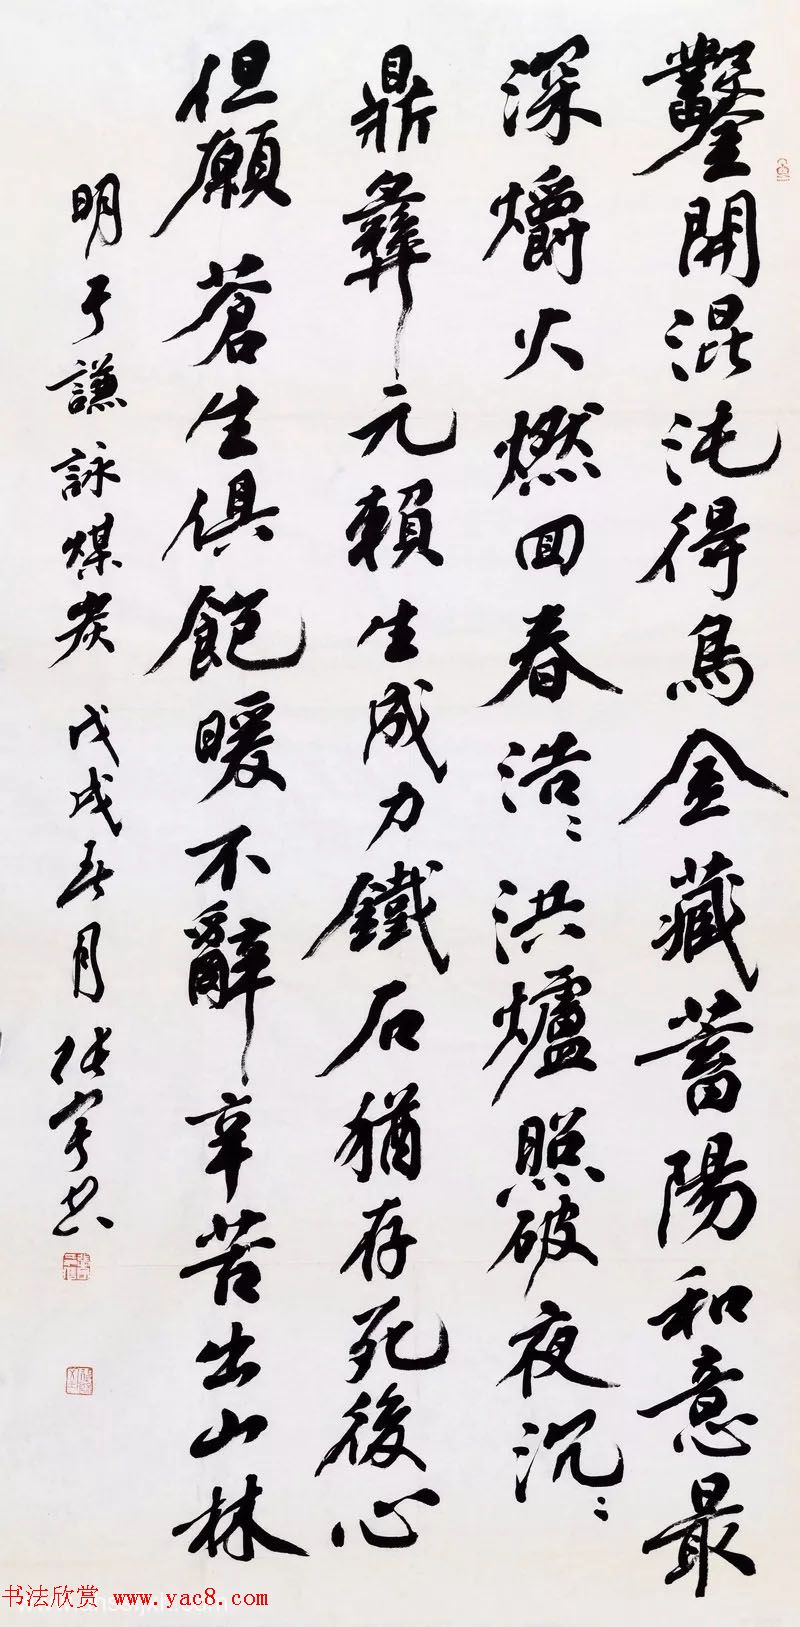 鑿開混沌得烏金藏蓄陽和意最
深爝火燃回春浩﹅洪爐照破夜沉﹅
鼎彝元賴生成力鐵石猶存死後心
但願蒼生俱飽暖不辭辛苦出山林
明于謙詠煤炭 戊戌春月
书法欣赏 www.yac8.com